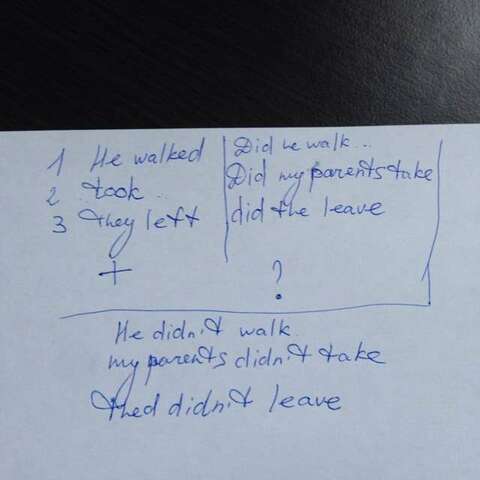 1 He walked
2 ..took..
3 they left
+
Did he walk...
Did my parents take
did the leave
?
He didn't walk
my parents didn't take
thed didn't leave